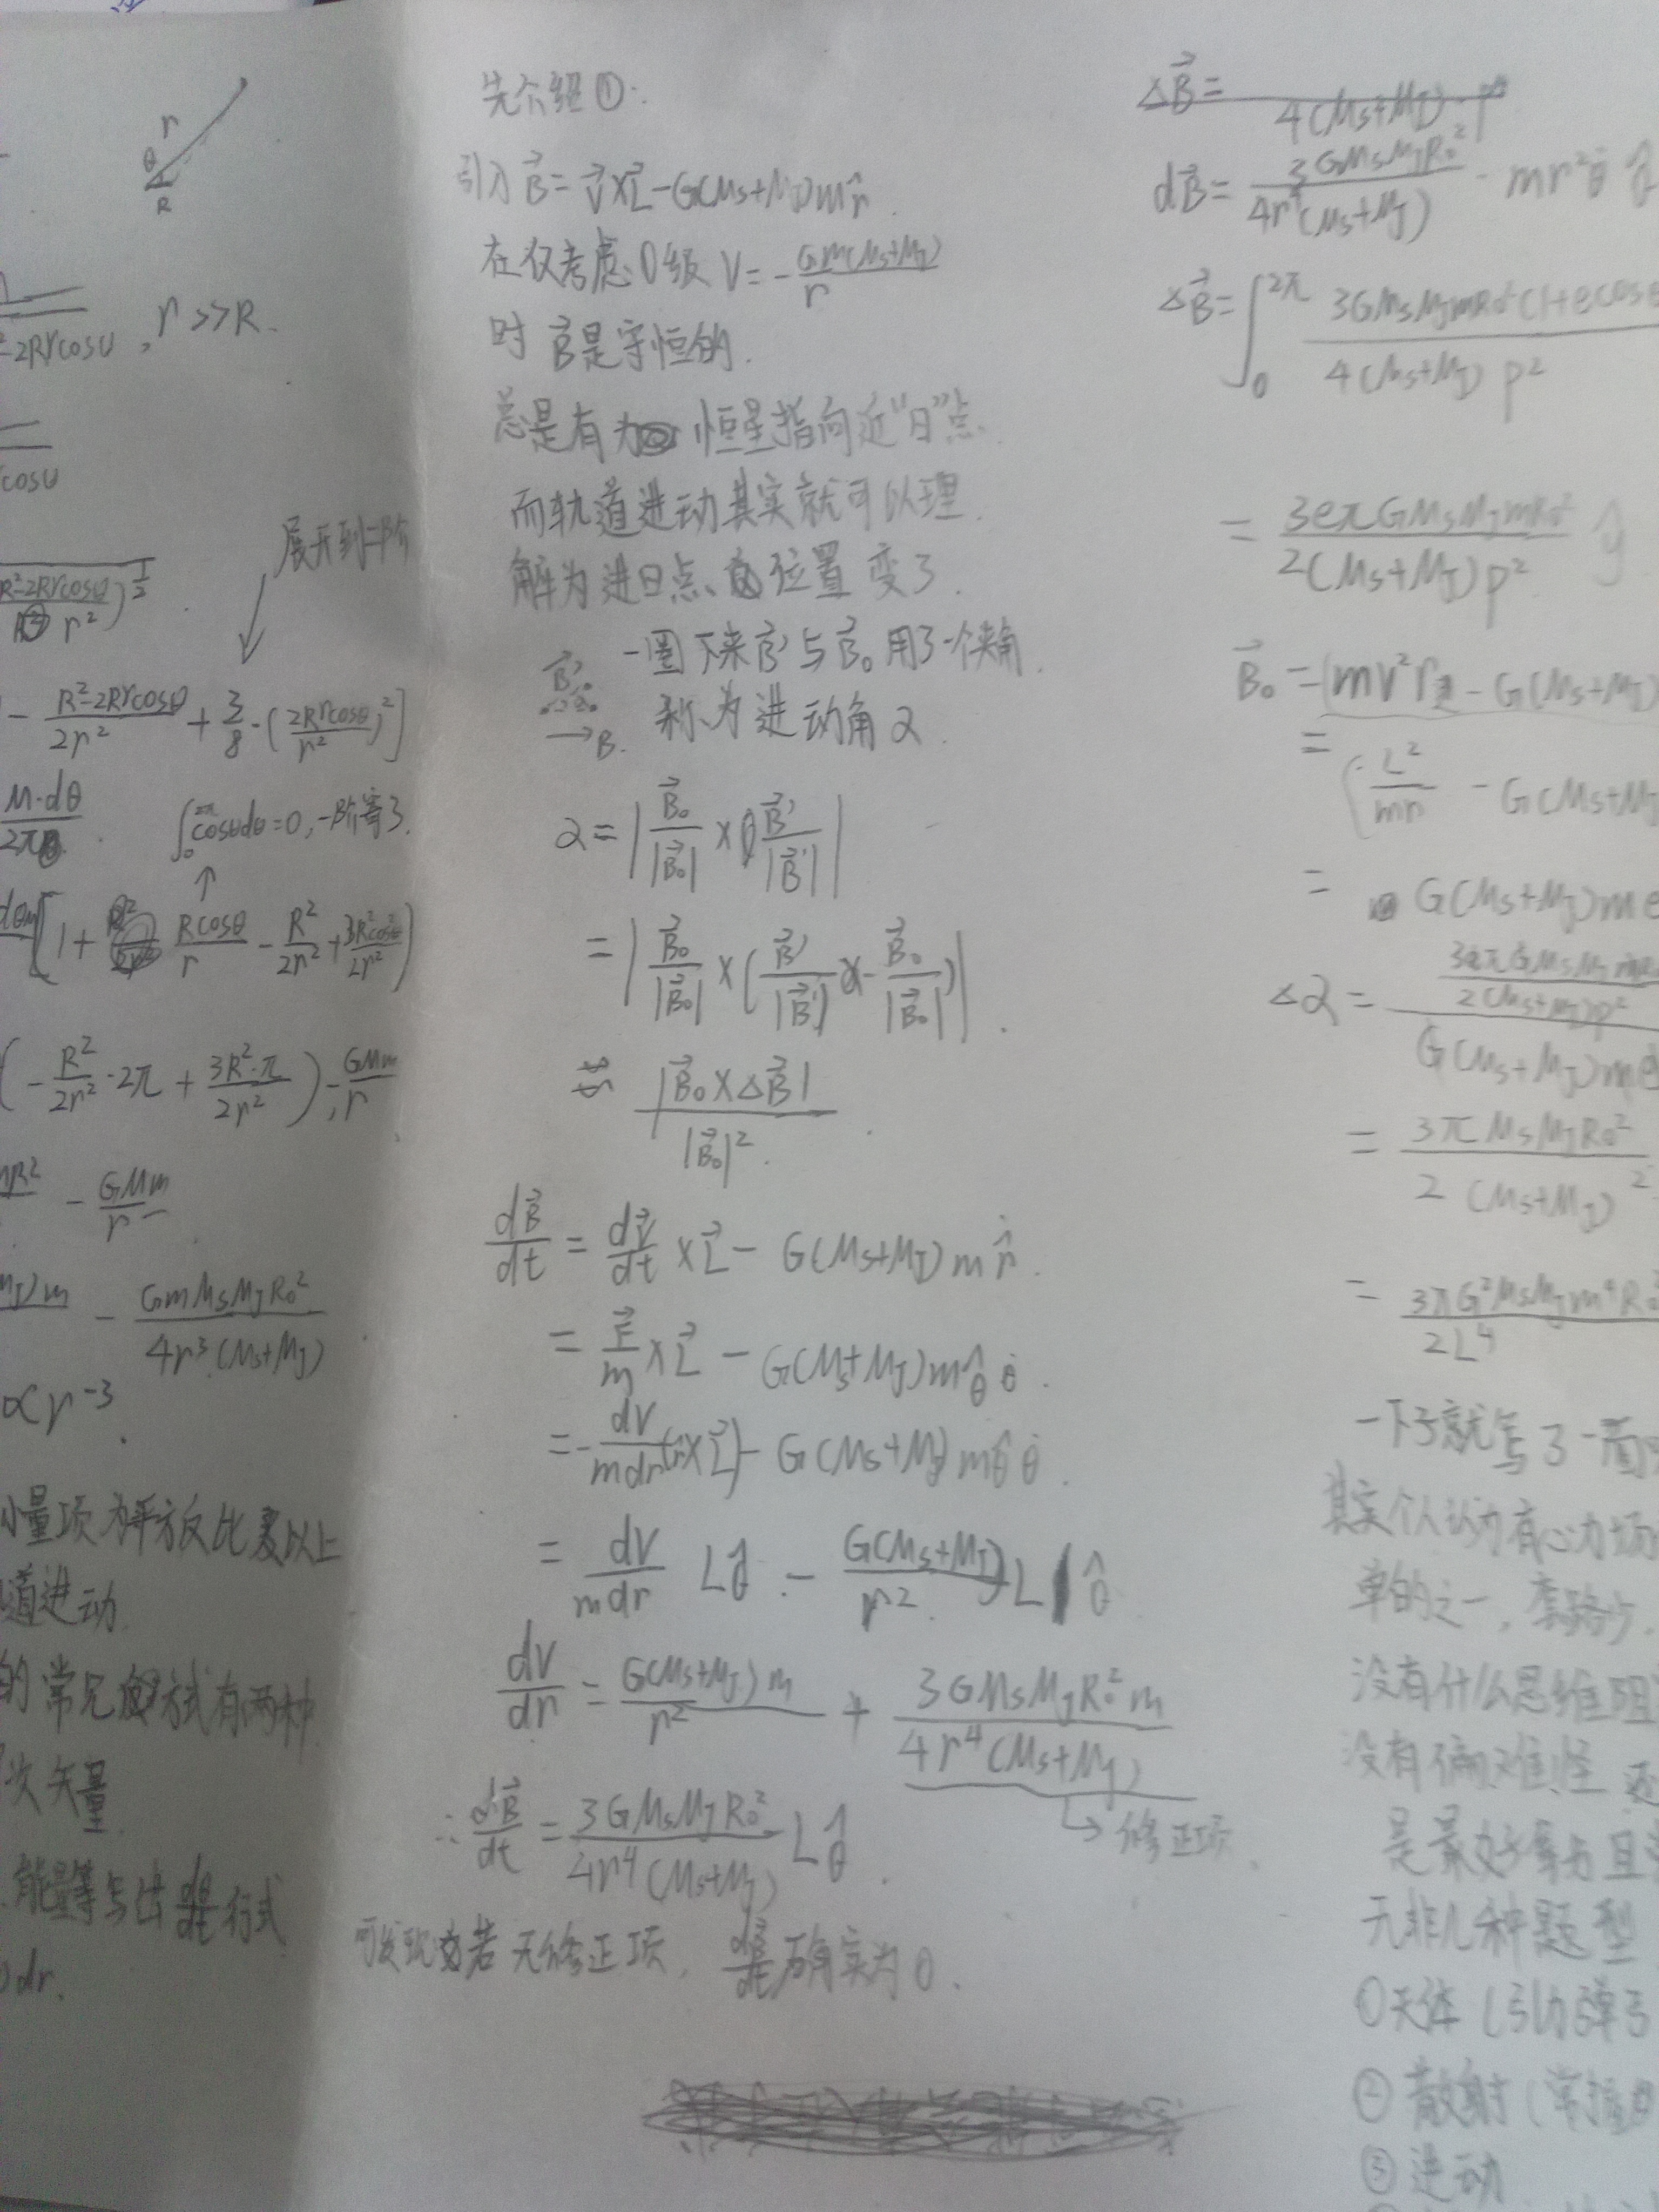 r
θ
R
-2Rrcosθ , r>>R.
cosθ
展开到二阶
R²-2Rrcosθ
r² )^{1/2}
- (R²-2Rrcosθ)/(2r²) + 3/8·(2Rrcosθ/r²)²]
M·dθ/2π
∫_0^{2π} cosθdθ=0,一阶寄了.
[1+ Rcosθ/r - R²/2r² + 3R²cos²θ/2r²)
(-R²/2r²·2π + 3R²·π/2r²) - GMm/r
- GMm/r
m - GmM_SM_JR_0²/4r³(M_S+M_J)
∝r^{-3}
小量项为平方反比
以上
道进动.
的常见方式有两种
次矢量
能量等写出 行式
dr.
先介绍①:
引入 B⃗=V⃗×L⃗-G(M_S+M_J)m r̂.
在仅考虑0级 V=-Gm(M_S+M_J)/r
时 B⃗是守恒的.
总是有为 恒星指向近"日"点.
而轨道进动其实就可以理
解为进日点位置变了.
一圈下来B⃗'与B⃗_0用了一个夹角.
B⃗'
→B.
称为进动角α.
α=|B⃗_0/|B⃗_0| × B⃗'/|B⃗'||
=|B⃗_0/|B⃗_0| × (B⃗'/|B⃗'| - B⃗_0/|B⃗_0|)|.
≈ |B⃗_0×ΔB⃗|/|B⃗_0|².
dB⃗/dt = dV⃗/dt ×L⃗ - G(M_S+M_J)m r̂˙.
= F⃗/m ×L⃗ - G(M_S+M_J)m θ̂ θ̇.
=-dV/mdr(r̂×L⃗) - G(M_S+M_J)m θ̂ θ̇.
= dV/mdr Lθ̂ - G(M_S+M_J)/r² L θ̂
dV/dr = G(M_S+M_J)m/r² + 3GM_SM_JR_0²m/4r⁴(M_S+M_J)
→修正项.
∴dB⃗/dt = 3GM_SM_JR_0²/4r⁴(M_S+M_J) Lθ̂.
可发现若无修正项, dB⃗/dt确实为0.
ΔB⃗=
4(M_S+M_J)·p
dB⃗= 3GM_SM_JR_0²/4r⁴(M_S+M_J) · mr²θ̇
ΔB⃗=∫_0^{2π} 3GM_SM_JmR_0²(1+ecosθ/4(M_S+M_J)p²
= 3eπGM_SM_JmR_0²/2(M_S+M_J)p² ŷ
B⃗_0 = (mv²r - G(M_S+M_J)
= (L²/mr - G(M_S+M_J
= G(M_S+M_J)me
Δα = 3eπGM_SM_JmR_0/2(M_S+M_J)p² / G(M_S+M_J)me
= 3πM_SM_JR_0²/2(M_S+M_J)²
= 3πG²M_SM_Jm⁴R_0²/2L⁴
一下子就写了一面
其实个人认为有心力场
单的之一,套路少.
没有什么思维
没有偏难怪 还
是最好拿分且
无非几种题型
①天体(引力弹弓
②散射(常
③进动